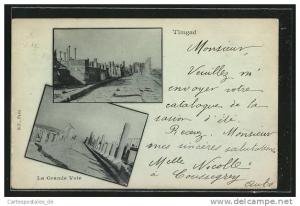 Timgad
Monsieur,
Veuillez m'
envoyer votre
catalogue de la
saison d'été.
Recevez Monsieur
mes sincères salutations
Melle Nicolle
à Coussegrey
Aube
N.D. Phot.
La Grande Voie
www.ansichtskartenversand.com